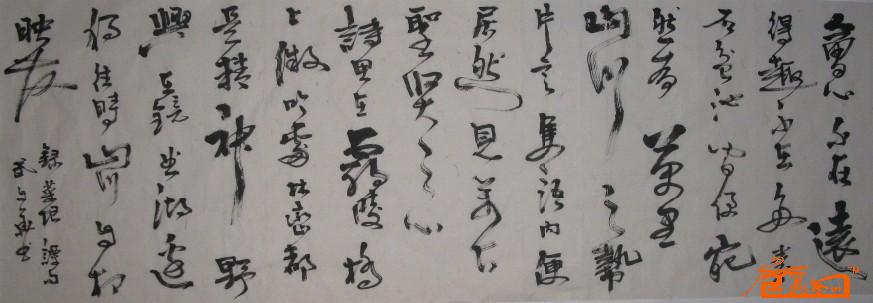 會心不在遠
得趣不在多拳
石盆池間便宛
然有萬里
山川之勢
片言隻語內便
居然見萬古
聖賢之心
詩思在霸陵橋
上微吟處林都
是精神野
興在鏡曲湖邊
獨往時山川自相
映發
錄菜根譚句
書